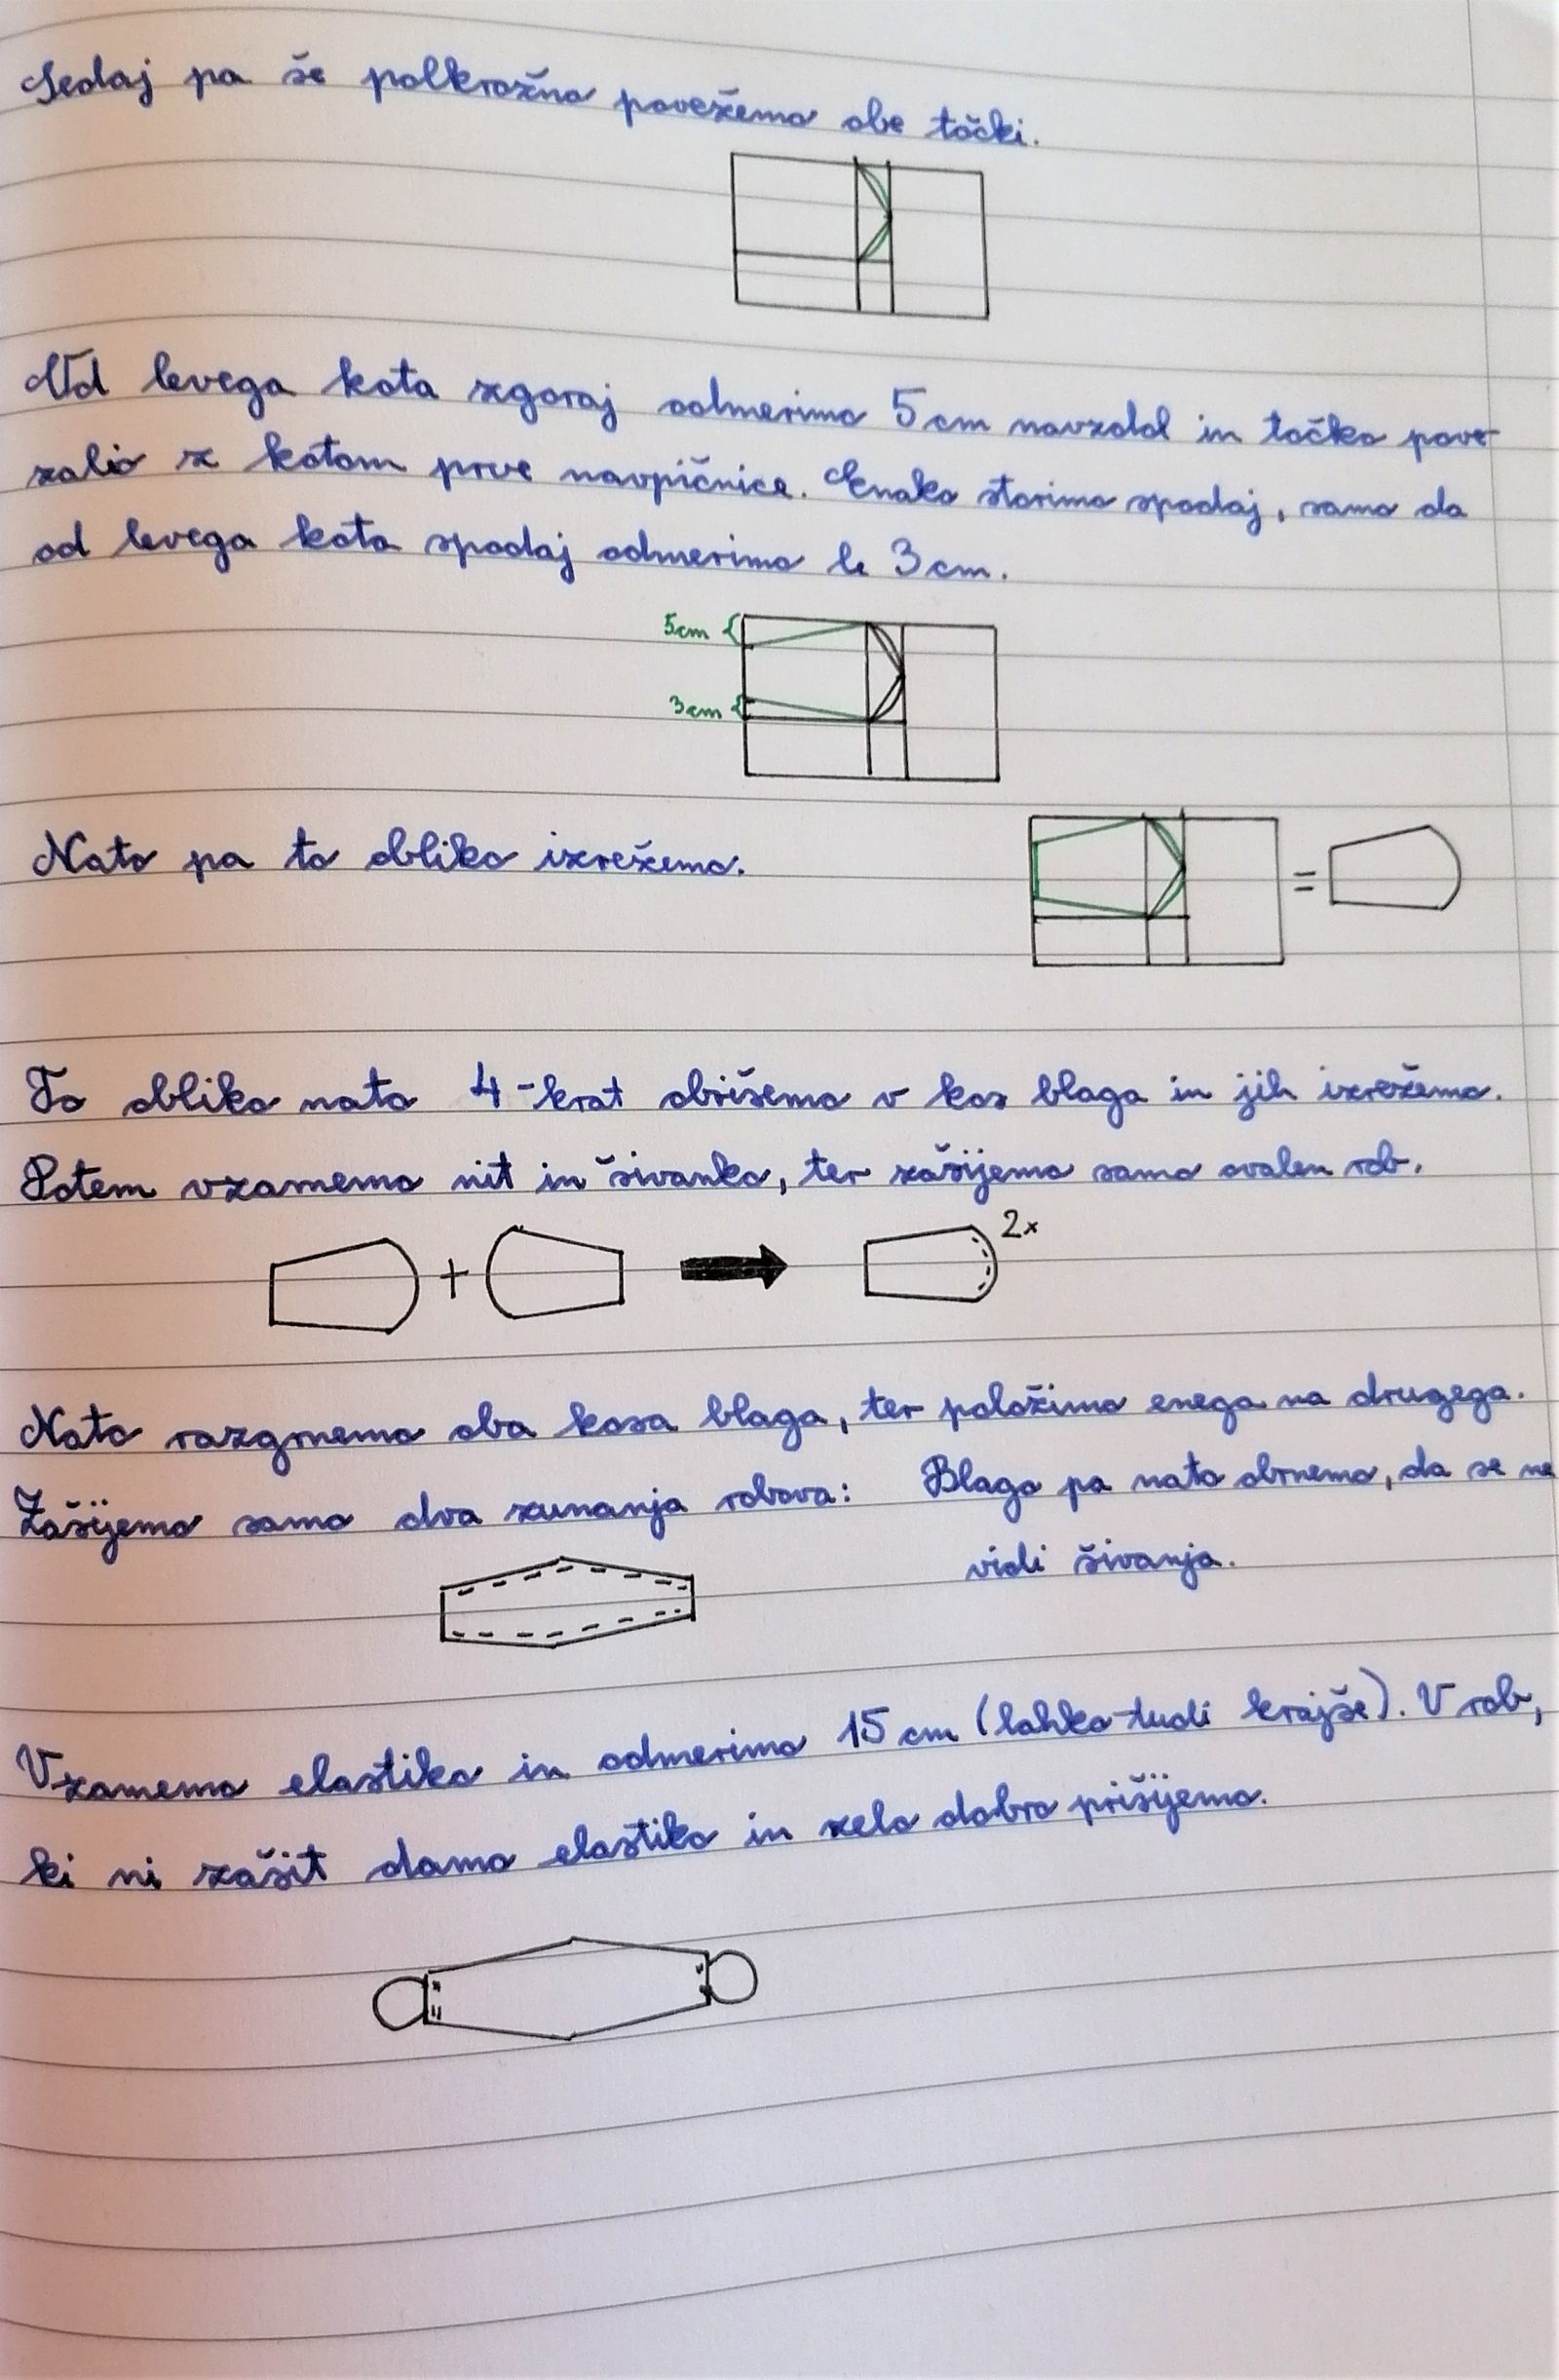 Sedaj pa še polkrožno povežemo obe točki.
Od levega kota zgoraj odmerimo 5cm navzdol in točko pove-
žalio z kotom prve navpičnice. Enako storimo spodaj, samo da
od levega kota spodaj odmerimo le 3cm.
5cm
3cm
Nato pa to obliko izrežemo.
=
To obliko nato 4-krat obrišemo v kos blaga in jih izrežemo.
Potem vzamemo nit in šivanko, ter zašijemo samo ovalen rob.
+
2x
Nato razgrnemo oba kosa blaga, ter položimo enega na drugega.
Zašijemo samo dva zunanja robova: Blago pa nato obrnemo, da se ne
vidi šivanja.
Vzamemo elastiko in odmerimo 15cm (lahko tudi krajše). V rob,
ki ni zašit damo elastiko in zelo dobro prišijemo.